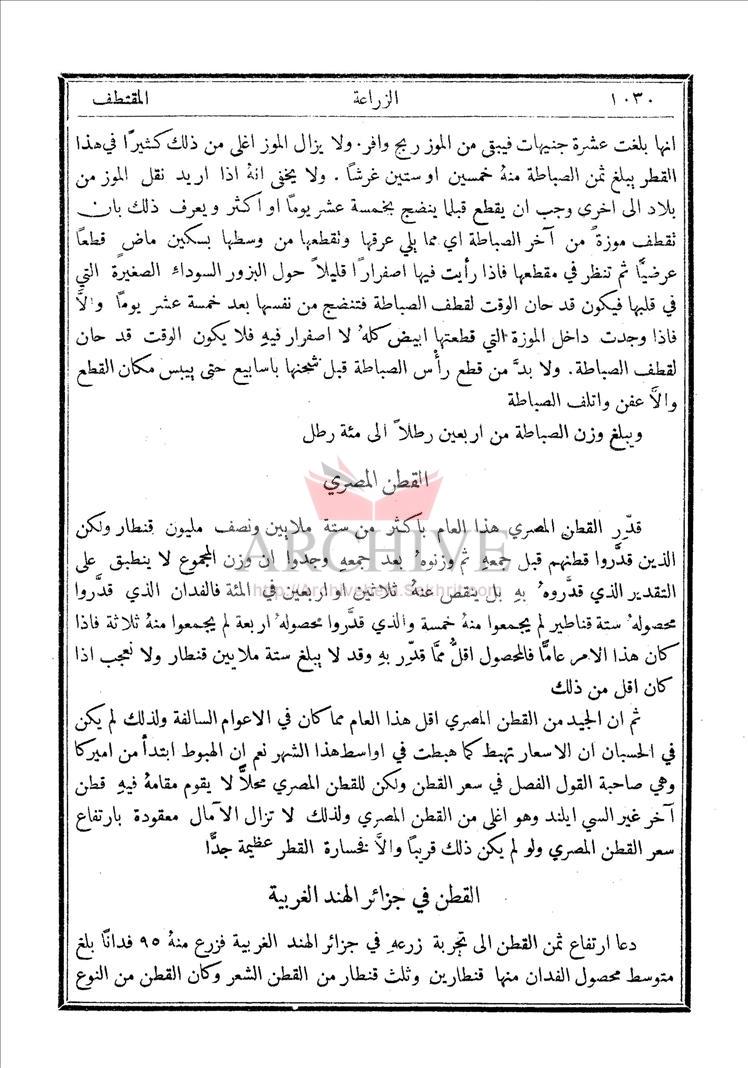 ١٠٣٠ الزراعة المقتطف
انها بلغت عشرة جنيهات فيبقى من الموز ربح وافر. ولا يزال الموز اغلى من ذلك كثيرًا في هذا
القطر يبلغ ثمن الصباطة منهُ خمسين او ستين غرشًا. ولا يخفى انهُ اذا اريد نقل الموز من
بلاد الى اخرى وجب ان يقطع قبلما ينضج بخمسة عشر يومًا او اكثر ويعرف ذلك بان
تقطف موزةً من آخر الصباطة اي مما يلي عرقها وتقطعها من وسطها بسكين ماضٍ قطعًا
عرضيًّا ثم تنظر في مقطعها فاذا رأيت فيها اصفرارًا قليلاً حول البزور السوداء الصغيرة التي
في قلبها فيكون قد حان الوقت لقطف الصباطة فتنضج من نفسها بعد خمسة عشر يومًا والَّا
فاذا وجدت داخل الموزة التي قطعتها ابيض كلهُ لا اصفرار فيهِ فلا يكون الوقت قد حان
لقطف الصباطة. ولا بدَّ من قطع رأْس الصباطة قبل شحنها باسابيع حتى ييبس مكان القطع
والَّا عفن واتلف الصباطة
ويبلغ وزن الصباطة من اربعين رطلاً الى مئة رطل
القطن المصري
قدِّر القطن المصري هذا العام باكثر من ستة ملايين ونصف مليون قنطار ولكن
الذين قدَّروا قطنهم قبل جمعهِ ثم وزنوهُ بعد جمعهِ وجدوا ان وزن المجموع لا ينطبق على
التقدير الذي قدَّروهُ بهِ بل ينقص عنهُ ثلاثين او اربعين في المئة فالفدان الذي قدَّروا
محصولهُ ستة قناطير لم يجمعوا منهُ خمسة والذي قدَّروا محصولهُ اربعة لم يجمعوا منهُ ثلاثة فاذا
كان هذا الامر عامًّا فالمحصول اقلُّ ممَّا قدِّر بهِ وقد لا يبلغ ستة ملايين قنطار ولا نعجب اذا
كان اقل من ذلك
ثم ان الجيد من القطن المصري اقل هذا العام مما كان في الاعوام السالفة ولذلك لم يكن
في الحسبان ان الاسعار تهبط كما هبطت في اواسط هذا الشهر نعم ان الهبوط ابتدأ من اميركا
وهي صاحبة القول الفصل في سعر القطن ولكن للقطن المصري محلاًّ لا يقوم مقامهُ فيهِ قطن
آخر غير السي ايلند وهو اغلى من القطن المصري ولذلك لا تزال الآمال معقودة بارتفاع
سعر القطن المصري ولو لم يكن ذلك قريبًا والَّا فخسارة القطر عظيمة جدًّا
القطن في جزائر الهند الغربية
دعا ارتفاع ثمن القطن الى تجربة زرعهِ في جزائر الهند الغربية فزرع منهُ ٩٥ فدانًا بلغ
متوسط محصول الفدان منها قنطارين وثلث قنطار من القطن الشعر وكان القطن من النوع
ARCHIVE